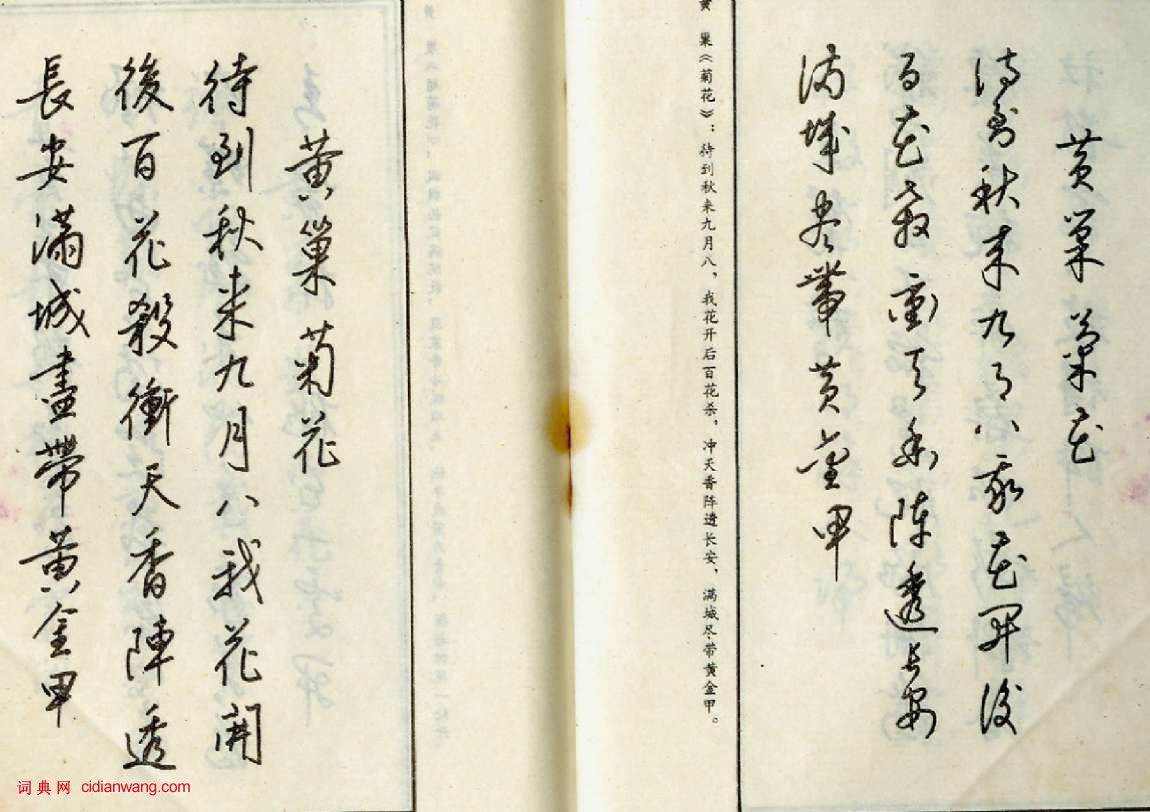 黄巢菊花
待到秋来九月八我花開後
百花殺衝天香陣透長安
滿城盡帶黄金甲
黄 巢《菊花》：待到秋来九月八，我花开后百花杀，冲天香阵透长安，满城尽带黄金甲。
黄巢菊花
待到秋来九月八我花開
後百花殺衝天香陣透
長安滿城盡帶黄金甲
词典网 cidianwang.com